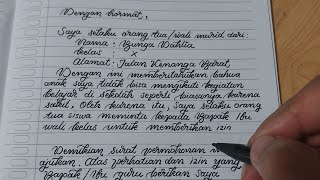 Dengan hormat,
Saya selaku orang tua/wali murid dari:
Nama : Bunga Dahlia
kelas : X
Alamat : Jalan Kenanga Barat
Dengan ini memberitahukan bahwa
anak saya tidak bisa mengikuti kegiatan
belajar di sekolah seperti biasanya karena
sakit, Oleh karena itu, saya selaku orang
tua siswa meminta kepada Bapak Ibu
wali kelas untuk memberikan izin
Demikian surat permohonan
ajukan. Atas perhatian dan izin yang
Bapak/Ibu guru berikan saya